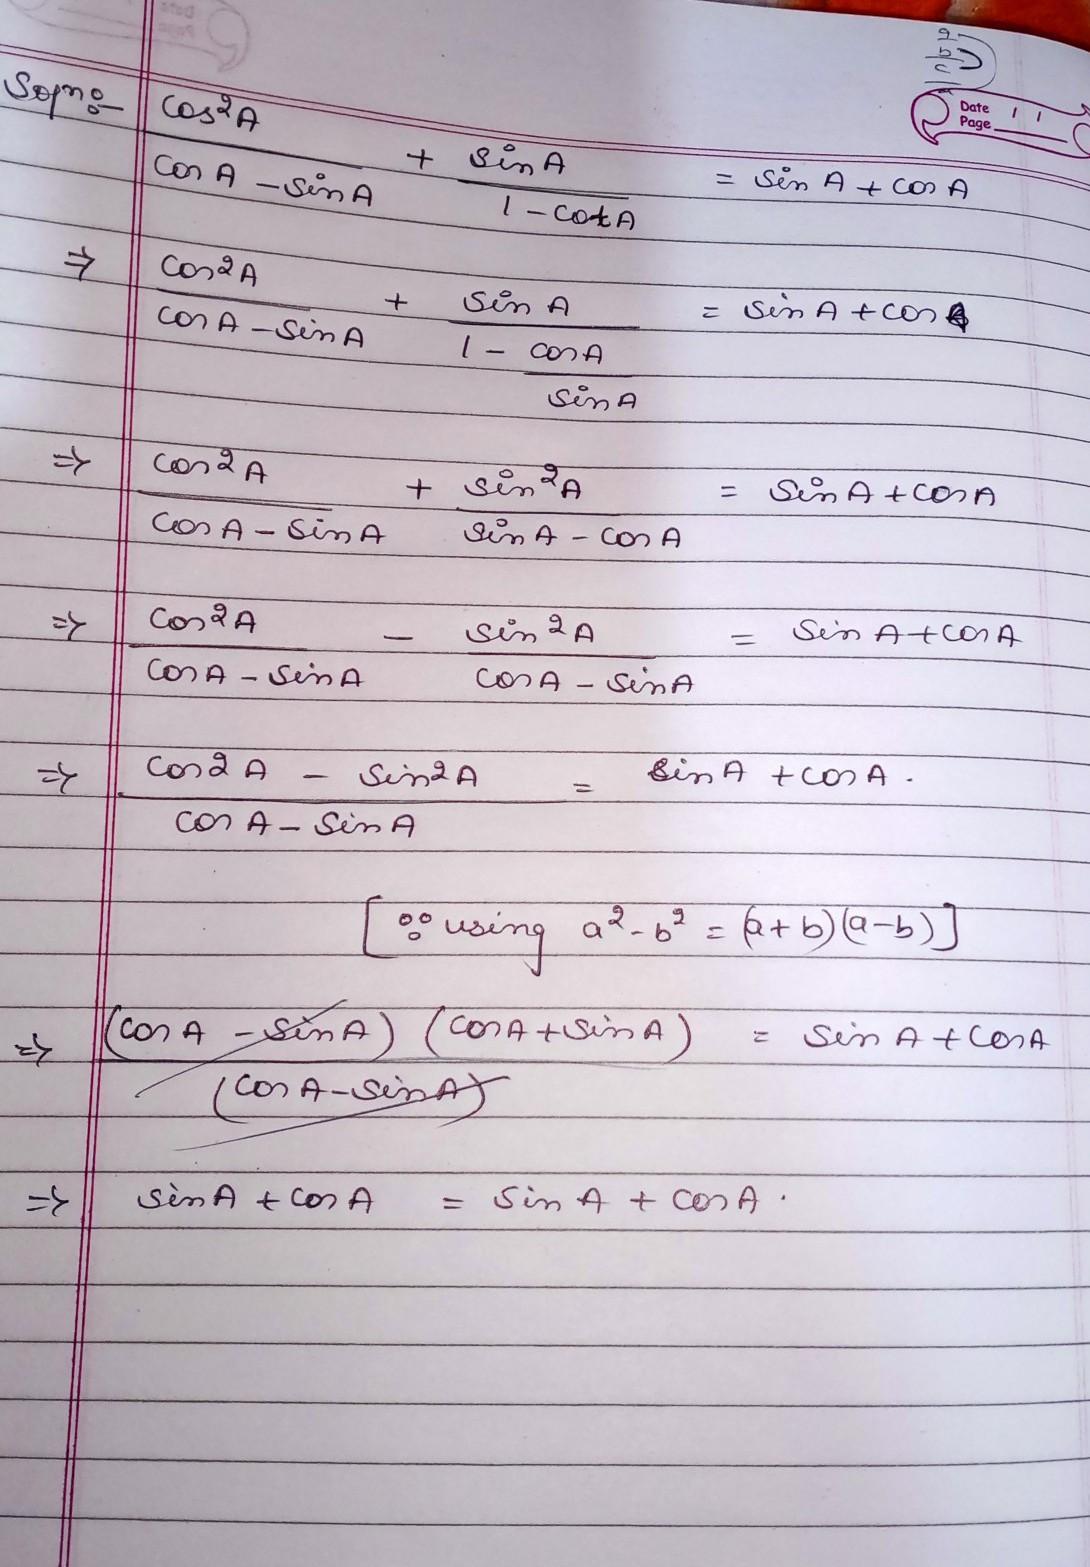 Date / /
Page
Soln:- cos²A / cosA - sinA + sinA / 1 - cotA = sinA + cosA
⇒ cos²A / cosA - sinA + sinA / 1 - cosA/sinA = sinA + cosA
⇒ cos²A / cosA - sinA + sin²A / sinA - cosA = sinA + cosA
⇒ cos²A / cosA - sinA - sin²A / cosA - sinA = sinA + cosA
⇒ cos²A - sin²A / cosA - sinA = sinA + cosA.
[∵ using a² - b² = (a+b)(a-b)]
⇒ (cosA - sinA) (cosA + sinA) / (cosA - sinA) = sinA + cosA
⇒ sinA + cosA = sinA + cosA.